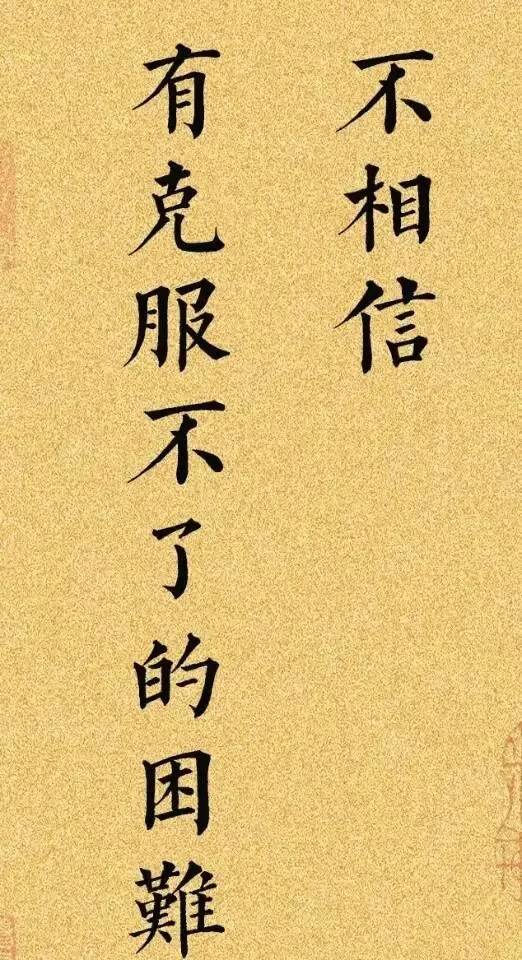 不相信
有克服不了的困難